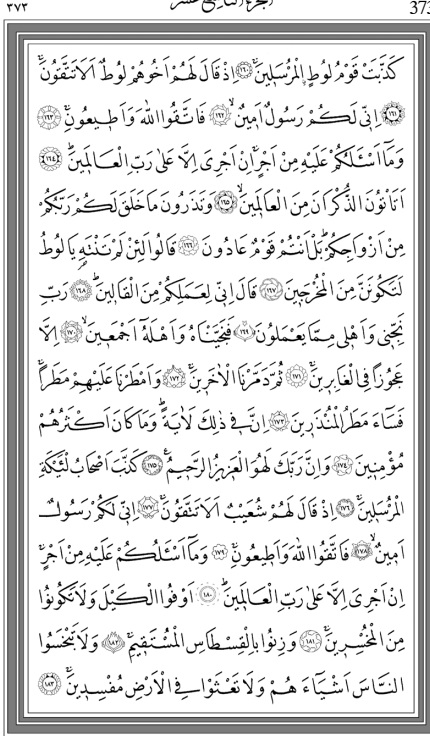 ٣٧٣ الجزء التاسع عشر 373
كَذَّبَتْ قَوْمُ لُوطٍ الْمُرْسَلِينَ ﴿١٦٠﴾ اِذْ قَالَ لَهُمْ اَخُوهُمْ لُوطٌ اَلَا تَتَّقُونَ
﴿١٦١﴾ اِنِّي لَكُمْ رَسُولٌ اَمِينٌ ﴿١٦٢﴾ فَاتَّقُوا اللّٰهَ وَاَطِيعُونِ ﴿١٦٣﴾
وَمَٓا اَسْـَٔلُكُمْ عَلَيْهِ مِنْ اَجْرٍ اِنْ اَجْرِيَ اِلَّا عَلٰى رَبِّ الْعَالَمِينَ ﴿١٦٤﴾
اَتَأْتُونَ الذُّكْرَانَ مِنَ الْعَالَمِينَ ﴿١٦٥﴾ وَتَذَرُونَ مَا خَلَقَ لَكُمْ رَبُّكُمْ
مِنْ اَزْوَاجِكُمْ بَلْ اَنْتُمْ قَوْمٌ عَادُونَ ﴿١٦٦﴾ قَالُوا لَئِنْ لَمْ تَنْتَهِ يَا لُوطُ
لَتَكُونَنَّ مِنَ الْمُخْرَجِينَ ﴿١٦٧﴾ قَالَ اِنِّي لِعَمَلِكُمْ مِنَ الْقَالِينَ ﴿١٦٨﴾ رَبِّ
نَجِّنِي وَاَهْلِي مِمَّا يَعْمَلُونَ ﴿١٦٩﴾ فَنَجَّيْنَاهُ وَاَهْلَهُٓ اَجْمَعِينَ ﴿١٧٠﴾ اِلَّا
عَجُوزًا فِي الْغَابِرِينَ ﴿١٧١﴾ ثُمَّ دَمَّرْنَا الْاٰخَرِينَ ﴿١٧٢﴾ وَاَمْطَرْنَا عَلَيْهِمْ مَطَرًا
فَسَٓاءَ مَطَرُ الْمُنْذَرِينَ ﴿١٧٣﴾ اِنَّ فِي ذٰلِكَ لَاٰيَةً وَمَا كَانَ اَكْثَرُهُمْ
مُؤْمِنِينَ ﴿١٧٤﴾ وَاِنَّ رَبَّكَ لَهُوَ الْعَزِيزُ الرَّحِيمُ ﴿١٧٥﴾ كَذَّبَ اَصْحَابُ لْـَٔيْكَةِ
الْمُرْسَلِينَ ﴿١٧٦﴾ اِذْ قَالَ لَهُمْ شُعَيْبٌ اَلَا تَتَّقُونَ ﴿١٧٧﴾ اِنِّي لَكُمْ رَسُولٌ
اَمِينٌ ﴿١٧٨﴾ فَاتَّقُوا اللّٰهَ وَاَطِيعُونِ ﴿١٧٩﴾ وَمَٓا اَسْـَٔلُكُمْ عَلَيْهِ مِنْ اَجْرٍ
اِنْ اَجْرِيَ اِلَّا عَلٰى رَبِّ الْعَالَمِينَ ﴿١٨٠﴾ اَوْفُوا الْكَيْلَ وَلَا تَكُونُوا
مِنَ الْمُخْسِرِينَ ﴿١٨١﴾ وَزِنُوا بِالْقِسْطَاسِ الْمُسْتَقِيمِ ﴿١٨٢﴾ وَلَا تَبْخَسُوا
النَّاسَ اَشْيَٓاءَهُمْ وَلَا تَعْثَوْا فِي الْاَرْضِ مُفْسِدِينَ ﴿١٨٣﴾